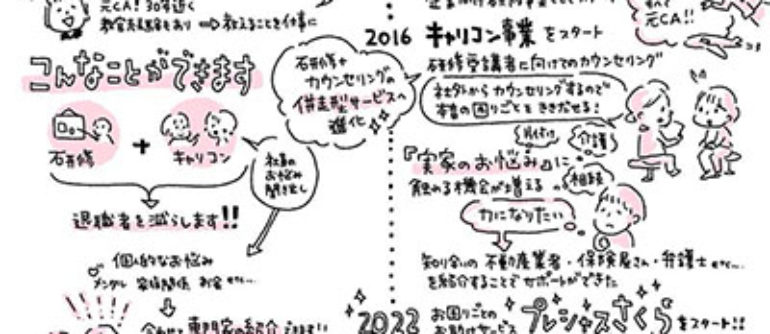 元CA! 30年近く
教官の経験もあり ⇒ 教えることを仕事に
こんなことができます
研修
+
キャリコン
社員の
お悩み
聞き出し
退職者を減らします!!
個人的なお悩み
メンタル 家族関係 お金 etc...
専門家の紹介
研修+
カウンセリングの
伴走型サービスへ
進化
元CA!!
2016 キャリコン事業をスタート
研修受講者に向けてのカウンセリング
社外からカウンセリングするので
本音の困りごとをききだせる!
片付け
介護
『実家のお悩み』に
触れる機会が増える
相続
力になりたい
知り合いの不動産業者・保険屋さん・弁護士 etc...
を紹介することでサポートができた
2022 お困りごとの
お助けサービス
プレシャスさくら をスタート!!